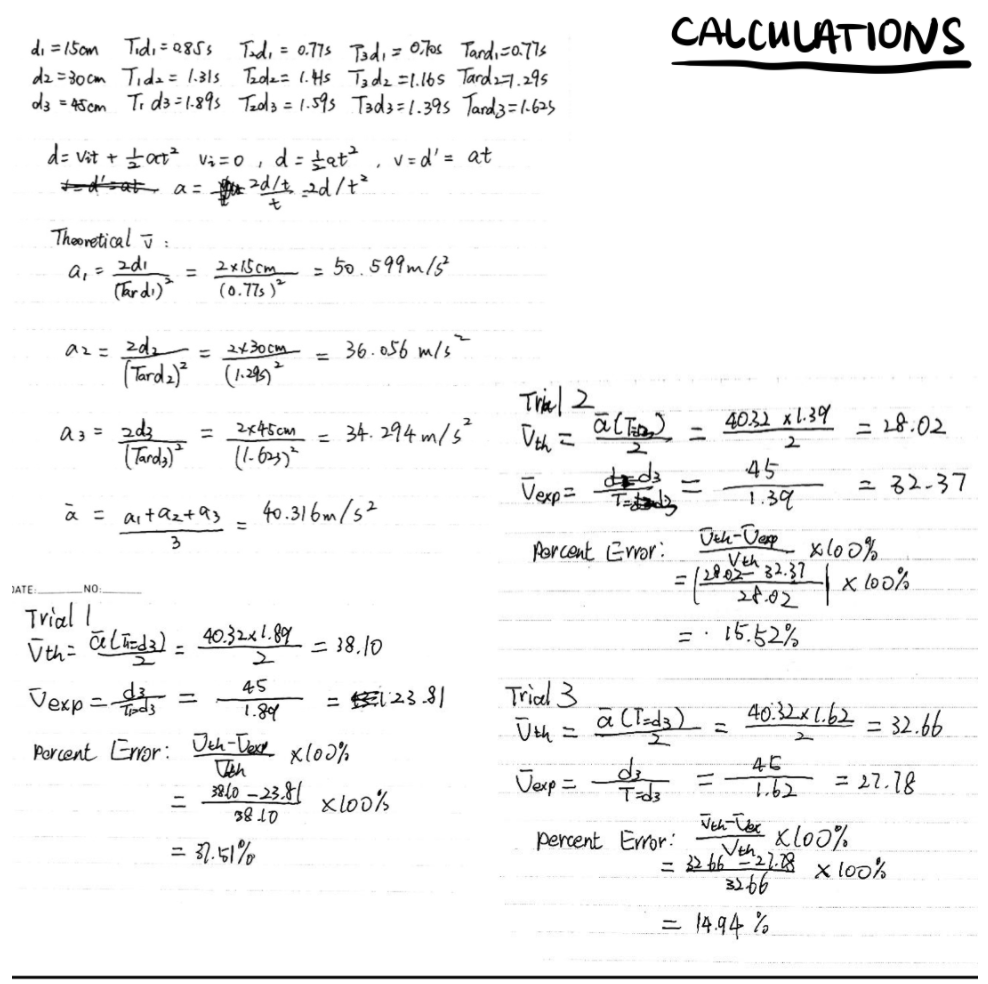 CALCULATIONS
d1 = 15cm T1d1 = 0.85s T2d1 = 0.77s T3d1 = 0.70s Tard1 = 0.77s
d2 = 30cm T1d2 = 1.31s T2d2 = 1.41s T3d2 = 1.16s Tard2 = 1.29s
d3 = 45cm T1d3 = 1.89s T2d3 = 1.59s T3d3 = 1.39s Tard3 = 1.62s
d = Vit + 1/2 at² Vi = 0 , d = 1/2 at² , v = d' = at
a = 2d/t / t = 2d/t²
Theoretical v̄ :
a1 = 2d1 / (Tard1)² = 2×15cm / (0.77s)² = 50.599 m/s²
a2 = 2d2 / (Tard2)² = 2×30cm / (1.29s)² = 36.056 m/s²
a3 = 2d3 / (Tard3)² = 2×45cm / (1.62s)² = 34.294 m/s²
ā = a1+a2+a3 / 3 = 40.316 m/s²
DATE: NO:
Trial 1
V̄th = ā(T=d3) / 2 = 40.32×1.89 / 2 = 38.10
V̄exp = d3 / T=d3 = 45 / 1.89 = 23.81
Percent Error: V̄th-V̄exp / V̄th ×100%
= 38.10-23.81 / 38.10 ×100%
= 37.51%
Trial 2
V̄th = ā(T=d3) / 2 = 40.32×1.39 / 2 = 28.02
V̄exp = d3 / T=d3 = 45 / 1.39 = 32.37
Percent Error: V̄th-V̄exp / Vth ×100%
= |28.02-32.37 / 28.02| ×100%
= 15.52%
Trial 3
V̄th = ā(T=d3) / 2 = 40.32×1.62 / 2 = 32.66
V̄exp = d3 / T=d3 = 45 / 1.62 = 27.78
Percent Error: V̄th-V̄ex / Vth ×100%
= 32.66-27.78 / 32.66 ×100%
= 14.94 %